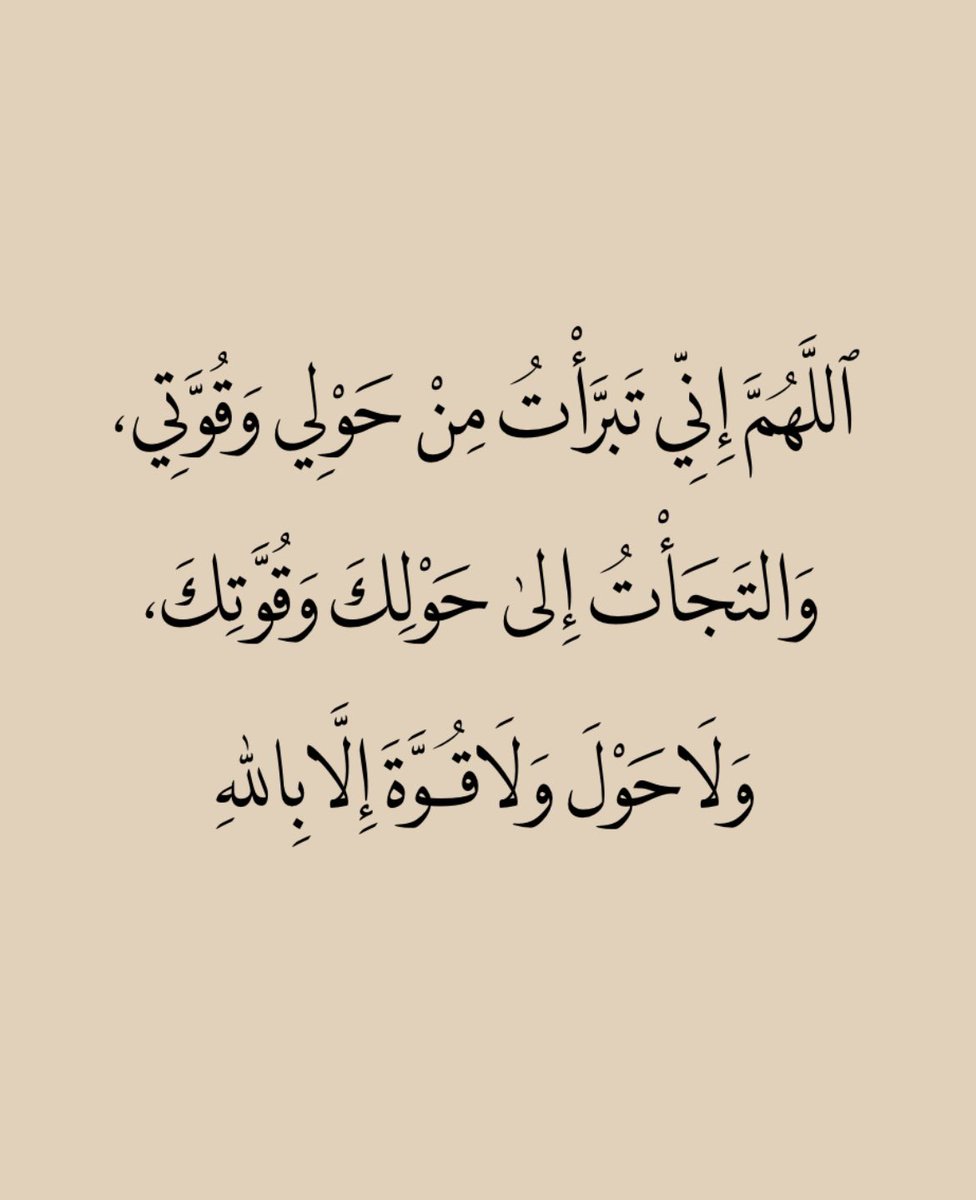 ٱللَّهُمَّ إِنِّي تَبَرَّأْتُ مِنْ حَوْلِي وَقُوَّتِي،
وَالتَجَأْتُ إِلىٰ حَوْلِكَ وَقُوَّتِكَ،
وَلَا حَوْلَ وَلَا قُــوَّةَ إِلَّا بِاللهِ